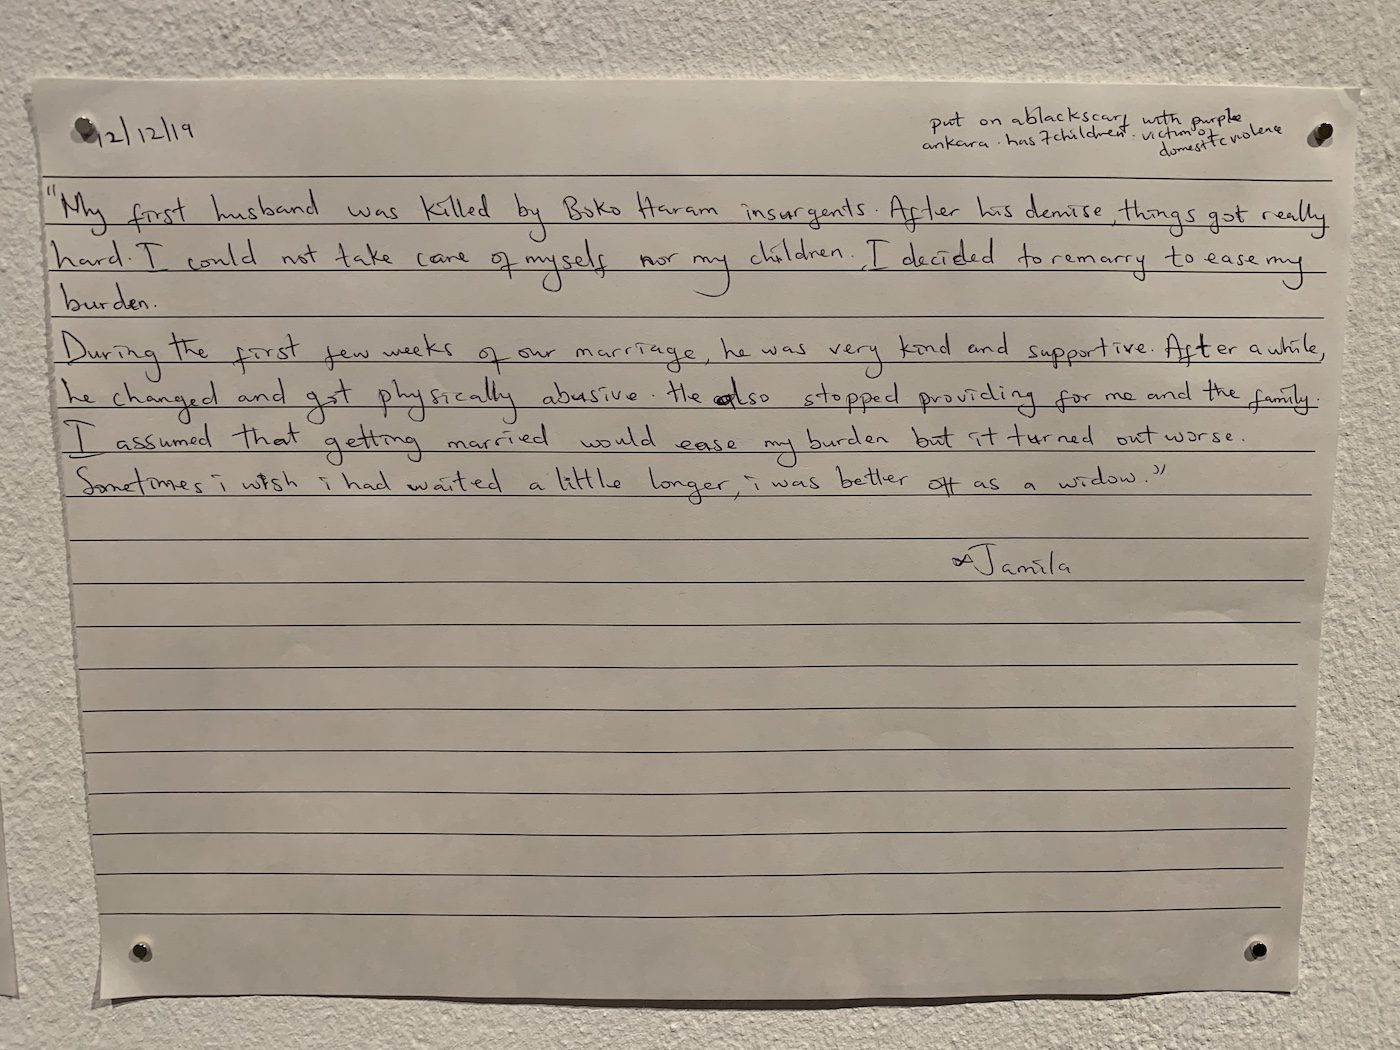 12/12/19
put on a black scarf with purple
ankara. has 7 children. victim of
domestic violence
"My first husband was killed by Boko Haram insurgents. After his demise, things got really
hard. I could not take care of myself nor my children. I decided to remarry to ease my
burden.
During the first few weeks of our marriage, he was very kind and supportive. After a while,
he changed and got physically abusive. He also stopped providing for me and the family.
I assumed that getting married would ease my burden but it turned out worse.
Sometimes i wish i had waited a little longer, i was better off as a widow."
Jamila